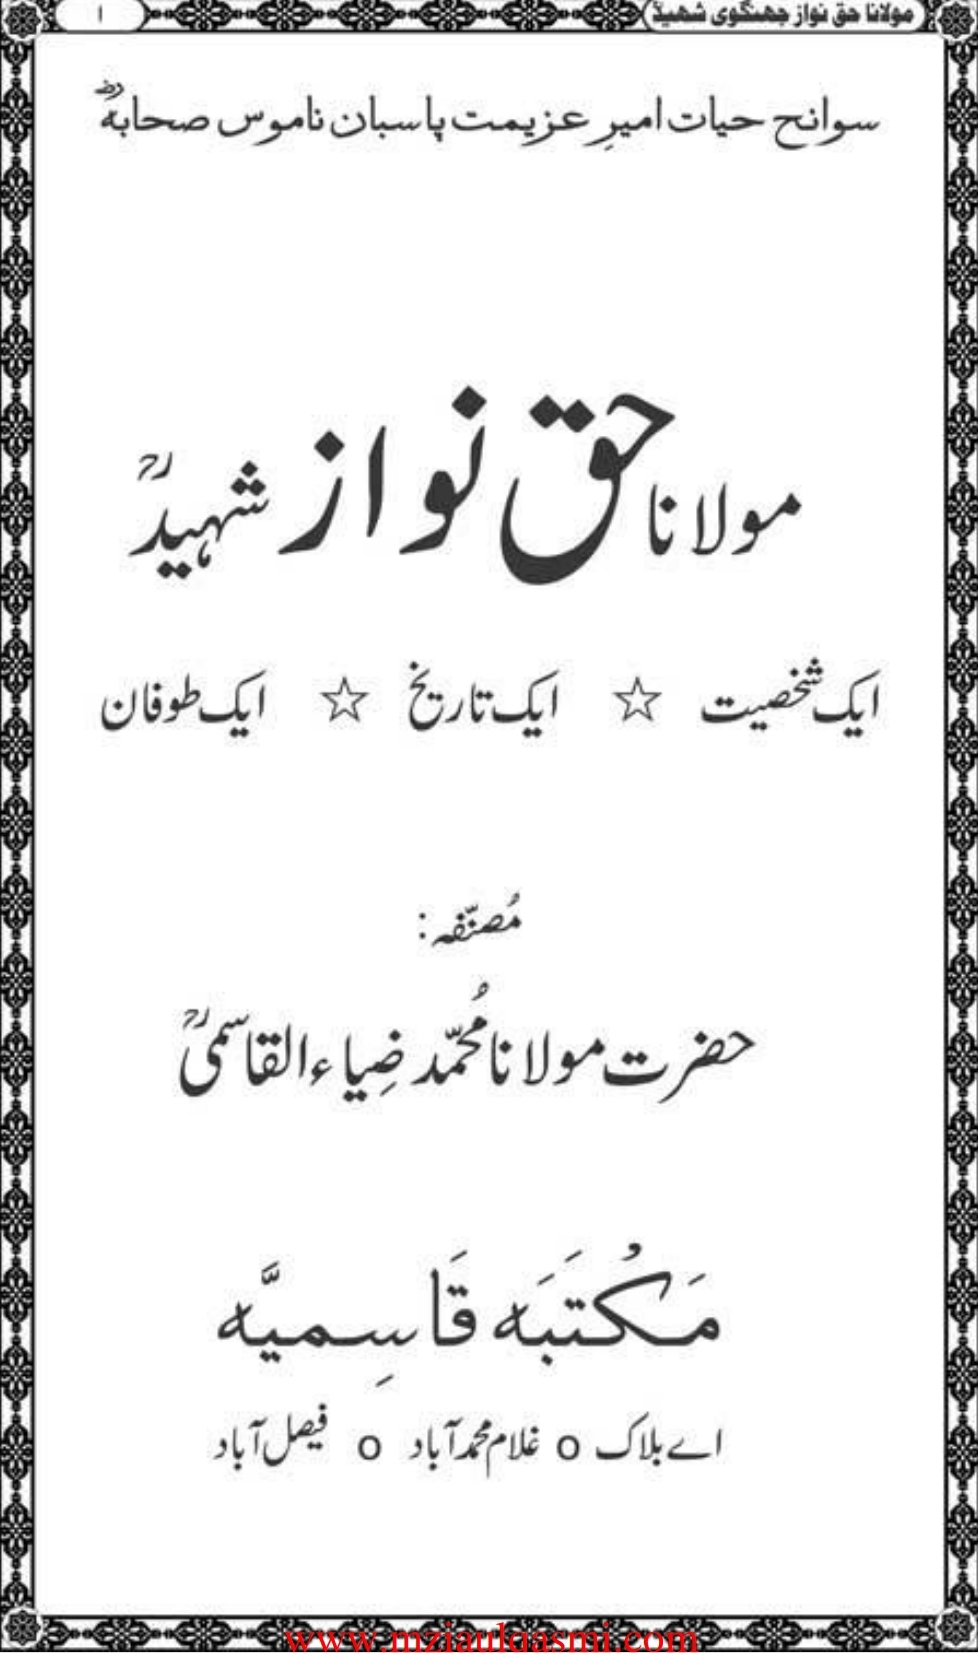 مولانا حق نواز جھنگوی شھیدؒ ۱
سوانح حیات امیرِ عزیمت پاسبان ناموس صحابہؓ
مولانا حق نواز شہیدؒ
ایک شخصیت ☆ ایک تاریخ ☆ ایک طوفان
مُصنّفہ:
حضرت مولانا مُحمّد ضِیاء القاسمیؒ
مَکْتَبَہ قَاسِمیَّہ
اے بلاک o غلام محمد آباد o فیصل آباد
www.mziaulqasmi.com